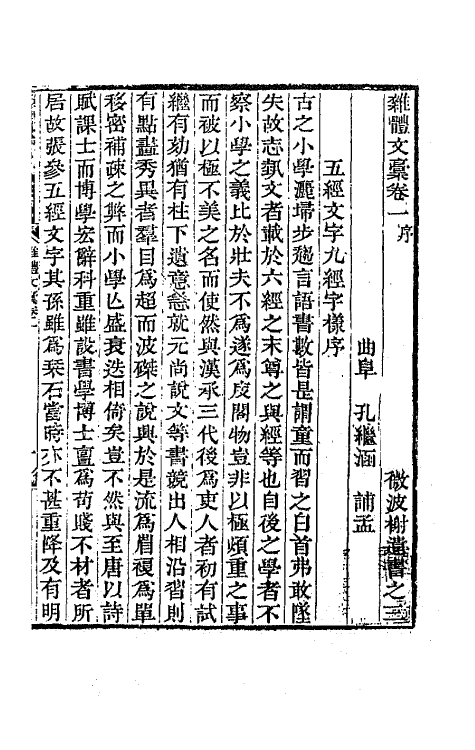 雜體文稾卷一序　微波榭遺書之三
曲阜　孔繼涵　誧孟
五經文字九經字樣序
古之小學灑埽步趨言語書數皆是謂童而習之白首弗敢墜
失故志蓺文者載於六經之末尊之與經等也自後之學者不
察小學之義比於壯夫不為遂為庋閣物豈非以極煩重之事
而被以極不美之名而使然與漢承三代後為吏人者初有試
繼有劾猶有柱下遺意
就元尚說文等書競出人相沿習則
有點畫秀異者羣目為超而波磔之說興於是流為眉
為單
移密補疎之弊而小學亾盛衰迭相倚矣豈不然與至唐以詩
賦課士而博學宏辭科重雖設書學博士亶為苟賤不材者所
居故張參五經文字其孫雖為栞石當時亦不甚重降及有明